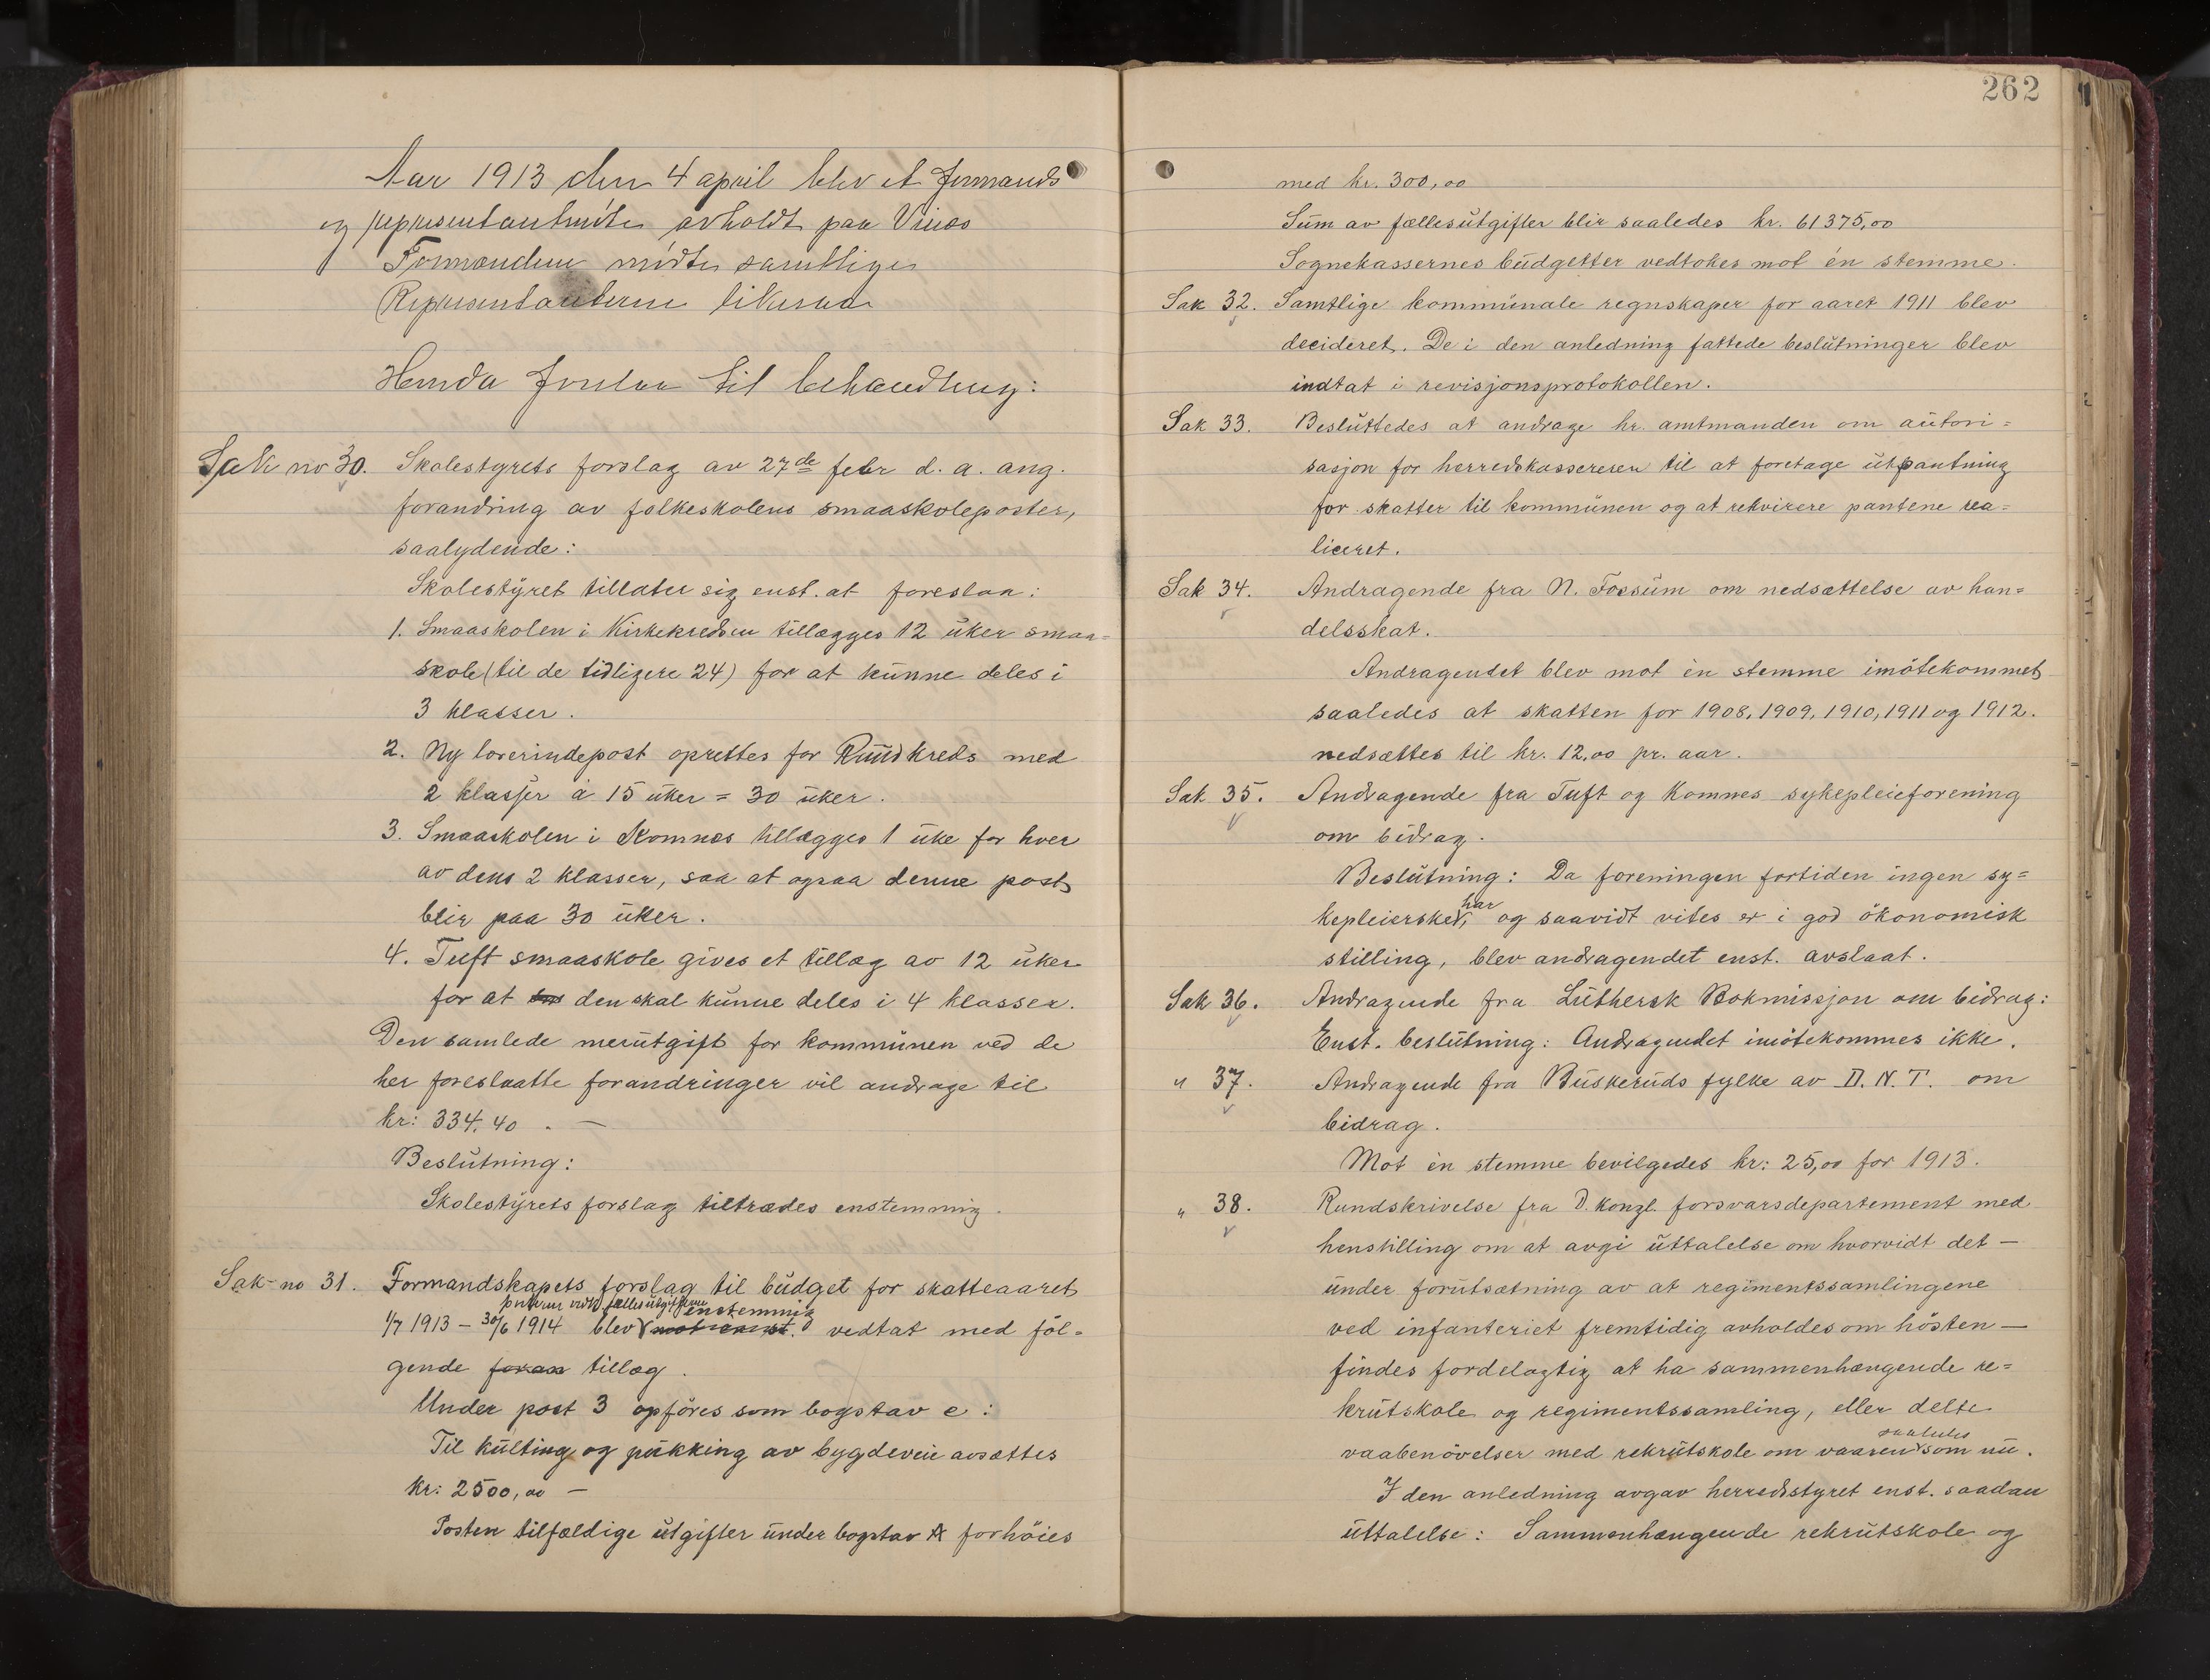 Aar 1913 den 4 april blev et formands
og representantmöte avholdt paa Vinæs
Formændene mödte samtlige
Representanterne likesaa
Herida forelaa til behandling:
Sak no 30. Skolestyrets forslag av 27de febr d. a. ang.
forandring av folkeskolens smaaskoleposter,
saalydende:
Skolestyret tillater sig enst. at foreslaa:
1. Smaaskolen i Kirkekredsen tillægges 12 uker smaa=
skole (til de tidligere 24) for at kunne deles i
3 klasser.
2. Ny lærerindepost oprettes for Ruudkreds med
2 klasser à 15 uker = 30 uker.
3. Smaaskolen i Komnes tillægges 1 uke for hver
av dens 2 klasser, saa at ogsaa denne post
blir paa 30 uker.
4. Tuft smaaskole gives et tillæg av 12 uker
for at den skal kunne deles i 4 klasser.
Den samlede merutgift for kommunen ved de
her foreslaatte forandringer vil andrage til
kr: 334,40. —
Beslutning:
Skolestyrets forslag tiltrædes enstemmig.
Sak no 31. Formandskapets forslag til budget for skatteaaret
vedk. fællesutgifterne enstemmig
1/7 1913 – 30/6 1914 blev mot en st. vedtat med föl=
gende foran tillæg.
Under post 3 opföres som bogstav e:
Til kulting og pukking av bygdeveie avsættes
kr: 2500,00 —
Posten tilfældige utgifter under bogstav A forhöies
262
med kr. 300,00
Sum av fællesutgifter blir saaledes kr. 61375,00
Sognekassernes budgetter vedtokes mot én stemme.
Sak 32. Samtlige kommunale regnskaper for aaret 1911 blev
decideret. De i den anledning fattede beslutninger blev
indtat i revisjonsprotokollen.
Sak 33. Besluttedes at andrage hr. amtmanden om autori=
sasjon for herredskassereren til at foretage utpantning
for skatter til kommunen og at rekvirere pantene rea=
liceret.
Sak 34. Andragende fra N. Fossum om nedsættelse av han=
delsskat.
Andragendet blev mot én stemme imötekommet
saaledes at skatten for 1908, 1909, 1910, 1911 og 1912.
nedsættes til kr. 12,00 pr. aar.
Sak 35. Andragende fra Tuft og Komnes sykepleieforening
om bidrag.
Beslutning: Da foreningen fortiden ingen sy=
har
kepleierske, og saavidt vites er i god ökonomisk
stilling, blev andragendet enst. avslaat.
Sak 36. Andragende fra Luthersk Bokmissjon om bidrag:
Enst. beslutning: Andragendet imötekommes ikke.
" 37. Andragende fra Buskeruds fylke av D. N. T. om
bidrag.
Mot én stemme bevilgedes kr: 25,00 for 1913.
" 38. Rundskrivelse fra D. kongl. forsvarsdepartement med
henstilling om at avgi uttalelse om hvorvidt det —
under forutsætning av at regimentssamlingene
ved infanteriet fremtidig avholdes om hösten —
findes fordelagtig at ha sammenhængende re=
krutskole og regimentssamling, eller delte
saaledes
vaabenövelser med rekrutskole om vaaren som nu.
I den anledning avgav herredsstyret enst. saadan
uttalelse: Sammenhængende rekrutskole og